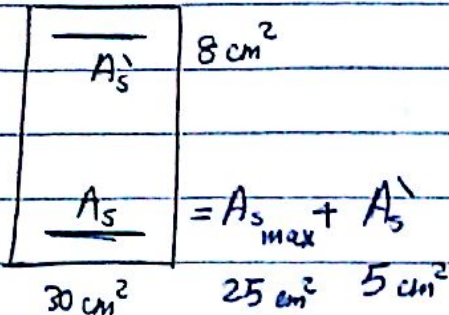 8 cm²
As`
As = As max + As`
30 cm² 25 cm² 5 cm²